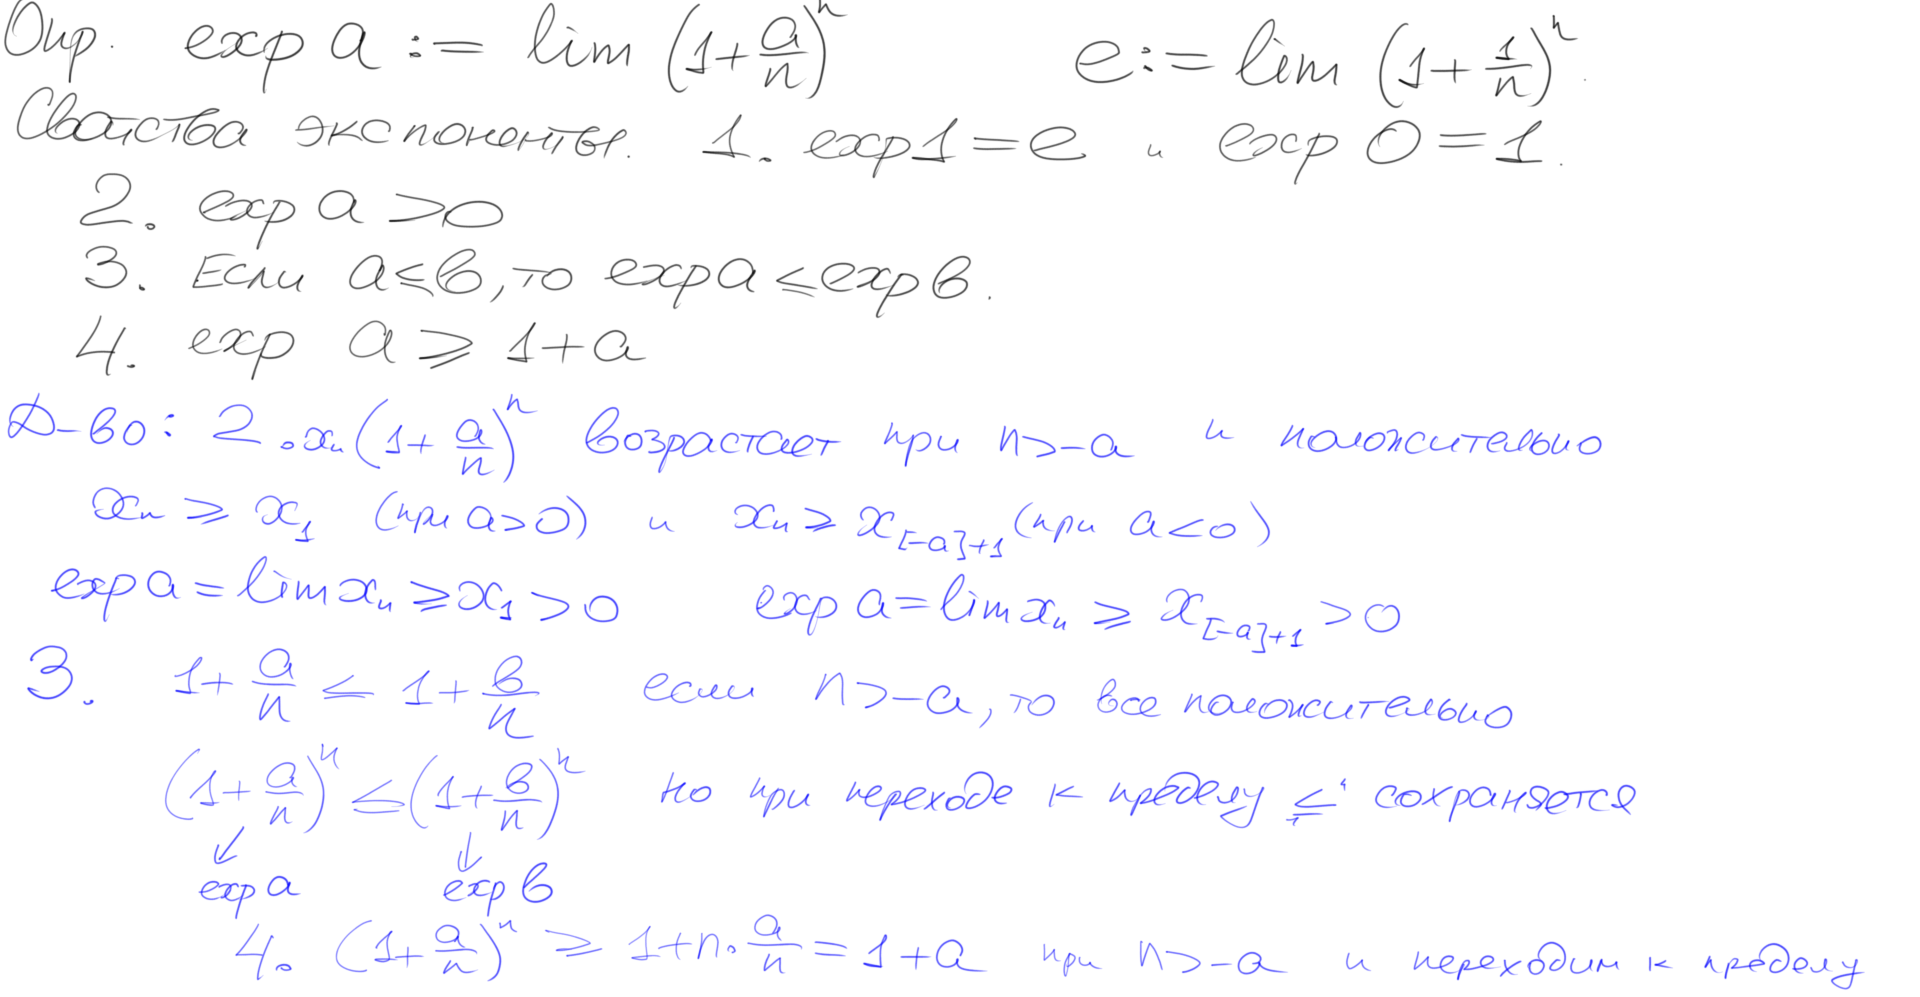 Опр. exp a := lim (1 + a/n)^n    e := lim (1 + 1/n)^n.
Свойства экспоненты. 1. exp 1 = e и exp 0 = 1.
2. exp a > 0
3. Если a ≤ b, то exp a ≤ exp b.
4. exp a ≥ 1 + a
Д-во: 2. x_n (1 + a/n)^n возрастает при n > -a и положительно
x_n ≥ x_1 (при a > 0) и x_n ≥ x_{[-a]+1} (при a < 0)
exp a = lim x_n ≥ x_1 > 0    exp a = lim x_n ≥ x_{[-a]+1} > 0
3. 1 + a/n ≤ 1 + b/n если n > -a, то все положительно
(1 + a/n)^n ≤ (1 + b/n)^n но при переходе к пределу ≤ сохраняется
↓ ↓
exp a    exp b
4. (1 + a/n)^n ≥ 1 + n · a/n = 1 + a при n > -a и переходим к пределу